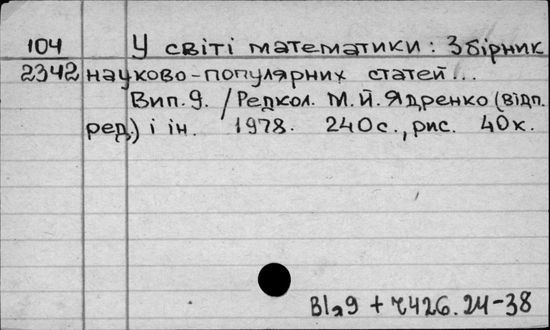 104 У світі математики: Збірник
2342 науково-популярних статей...
Вип. 9. / Редкол. М.Й. Ядренко (відп.
ред.) і ін. 1978. 240с., рис. 40к.
+ 7426.24-38